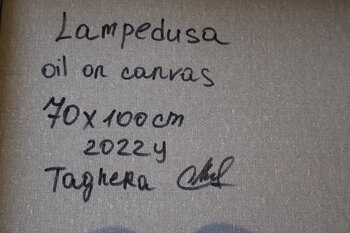 Lampedusa
oil on canvas
70x100cm
2022y
Taghera